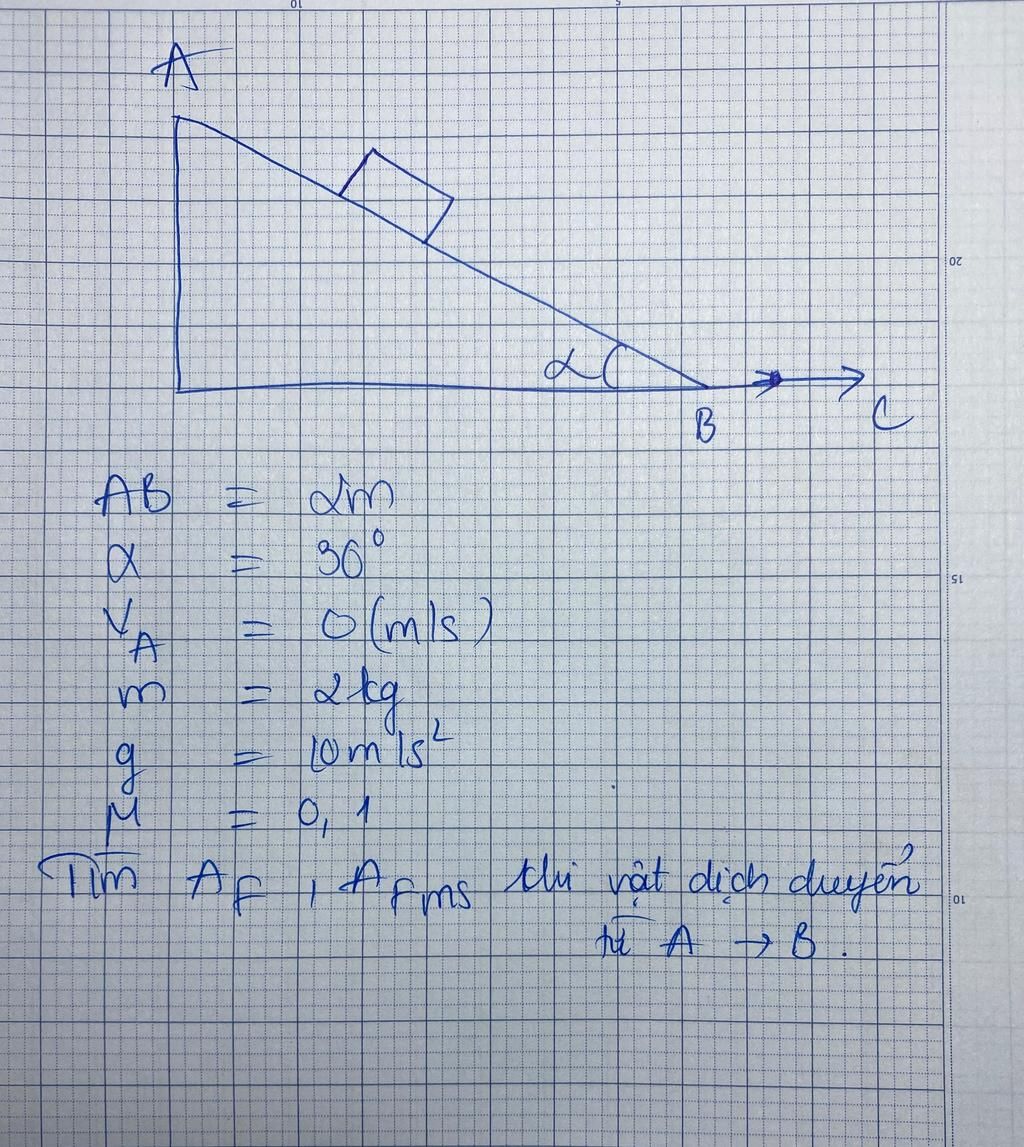 10
5
A
20
α
B
C
AB = 2m
α = 30°
15
V_A = 0 (m/s)
m = 2kg
g = 10m/s²
μ = 0,1
Tìm A_F , A_Fms khi vật dịch chuyển
10
từ A → B .